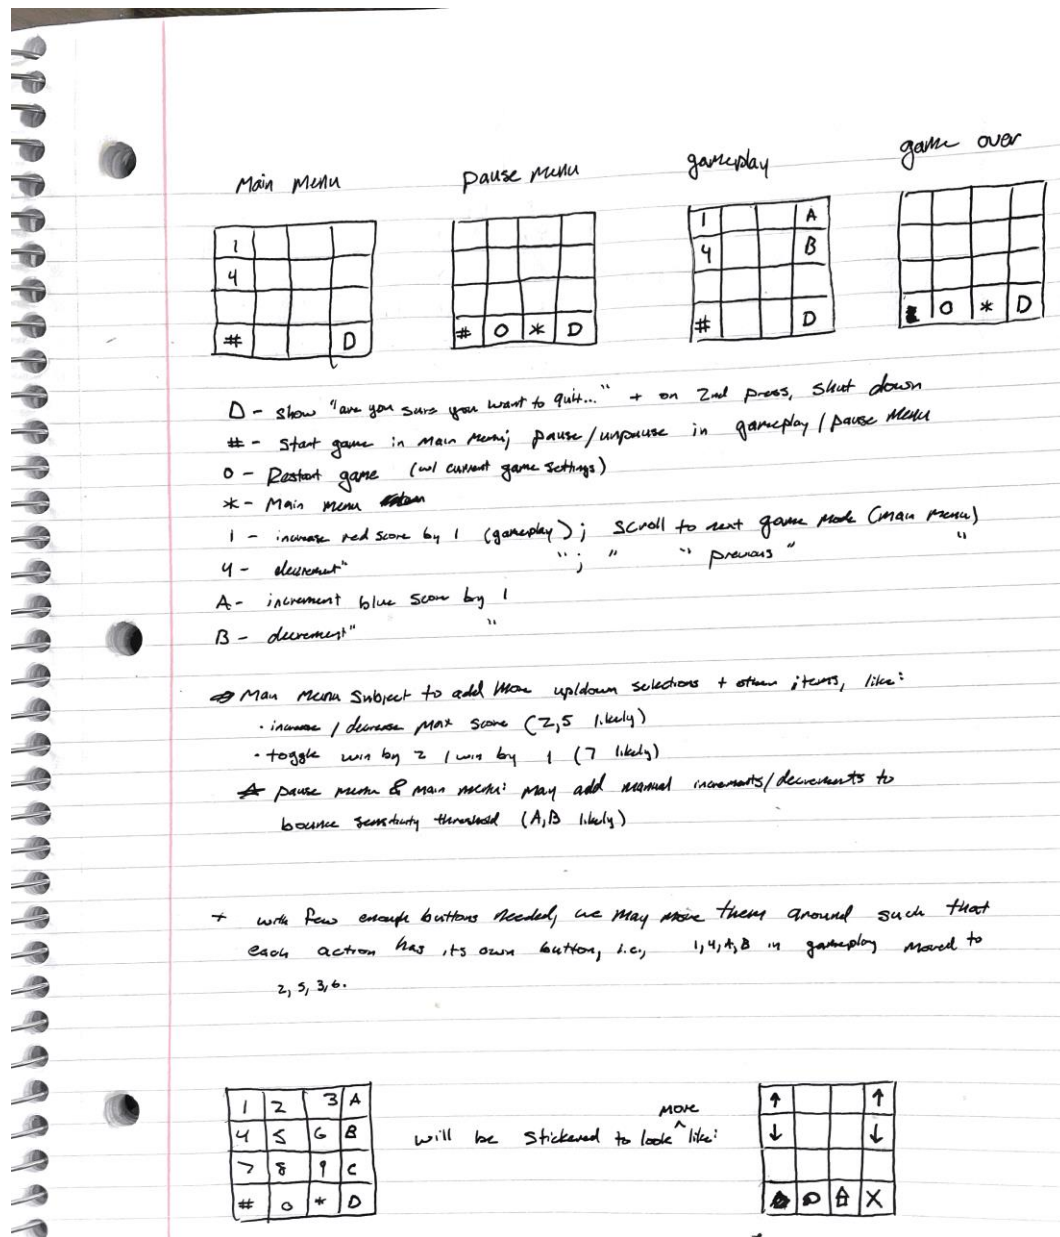 Main Menu
pause menu
gameplay
game over
1
4
# D
# 0 * D
1 A
4 B
# D
0 * D
D - show "are you sure you want to quit..." + on 2nd press, shut down
# - Start game in main menu; pause/unpause in gameplay / pause menu
0 - Restart game (w/ current game settings)
* - Main menu
1 - increase red score by 1 (gameplay); scroll to next game mode (main menu)
4 - decrement " "; " " previous " "
A - increment blue score by 1
B - decrement " "
Main menu subject to add more up/down selections + other items, like:
· increase / decrease max score (2,5 likely)
· toggle win by 2 / win by 1 (7 likely)
pause menu & main menu: may add manual increments/decrements to
bounce sensitivity threshold (A,B likely)
+ with few enough buttons needed, we may move them around such that
each action has its own button, i.e., 1,4,A,B in gameplay moved to
2, 5, 3, 6.
1 2 3 A
4 5 6 B
7 8 9 C
# 0 * D
will be stickered to look more like:
↑ ↑
↓ ↓
X